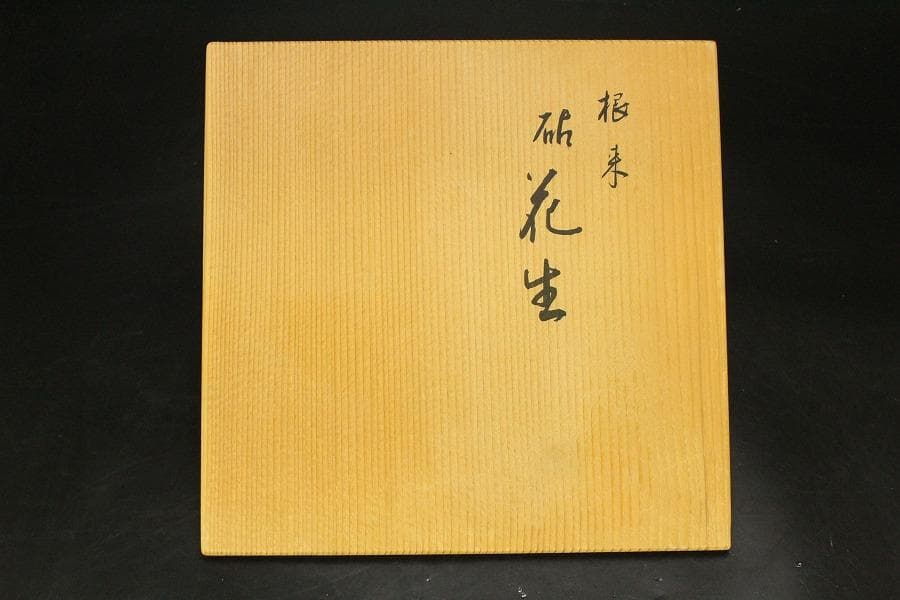 根来
砧花生